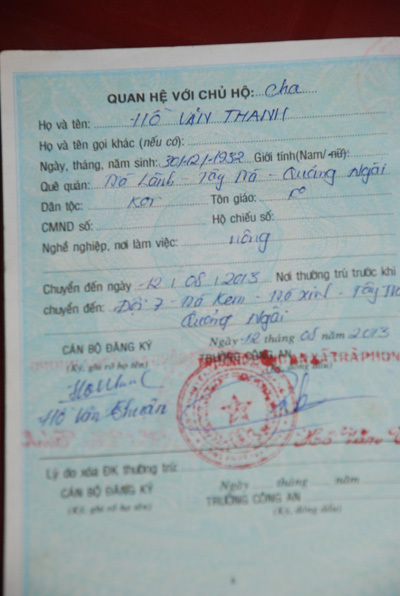 QUAN HỆ VỚI CHỦ HỘ: Cha
Họ và tên: HỒ VĂN THANH
Họ và tên gọi khác (nếu có):
Ngày, tháng, năm sinh: 30/12/1932 Giới tính(Nam/nữ):
Quê quán: Trà Lãnh - Tây Trà - Quảng Ngãi
Dân tộc: Kor Tôn giáo: Ko
CMND số: Hộ chiếu số:
Nghề nghiệp, nơi làm việc: nông
Chuyển đến ngày 12/08/2013 Nơi thường trú trước khi
chuyển đến: Đội 7 - Trà Kem - Trà Xinh - Tây
Quảng Ngãi
Ngày 12 tháng 08 năm 2013
CÁN BỘ ĐĂNG KÝ TRƯỞNG CÔNG AN XÃ TRÀ PHONG
(Ký, ghi rõ họ tên)
Hồ Văn Thuận Hồ Văn
Lý do xóa ĐK thường trú:
Ngày tháng năm
CÁN BỘ ĐĂNG KÝ TRƯỞNG CÔNG AN
(Ký, ghi rõ họ tên) (Ký, đóng dấu)